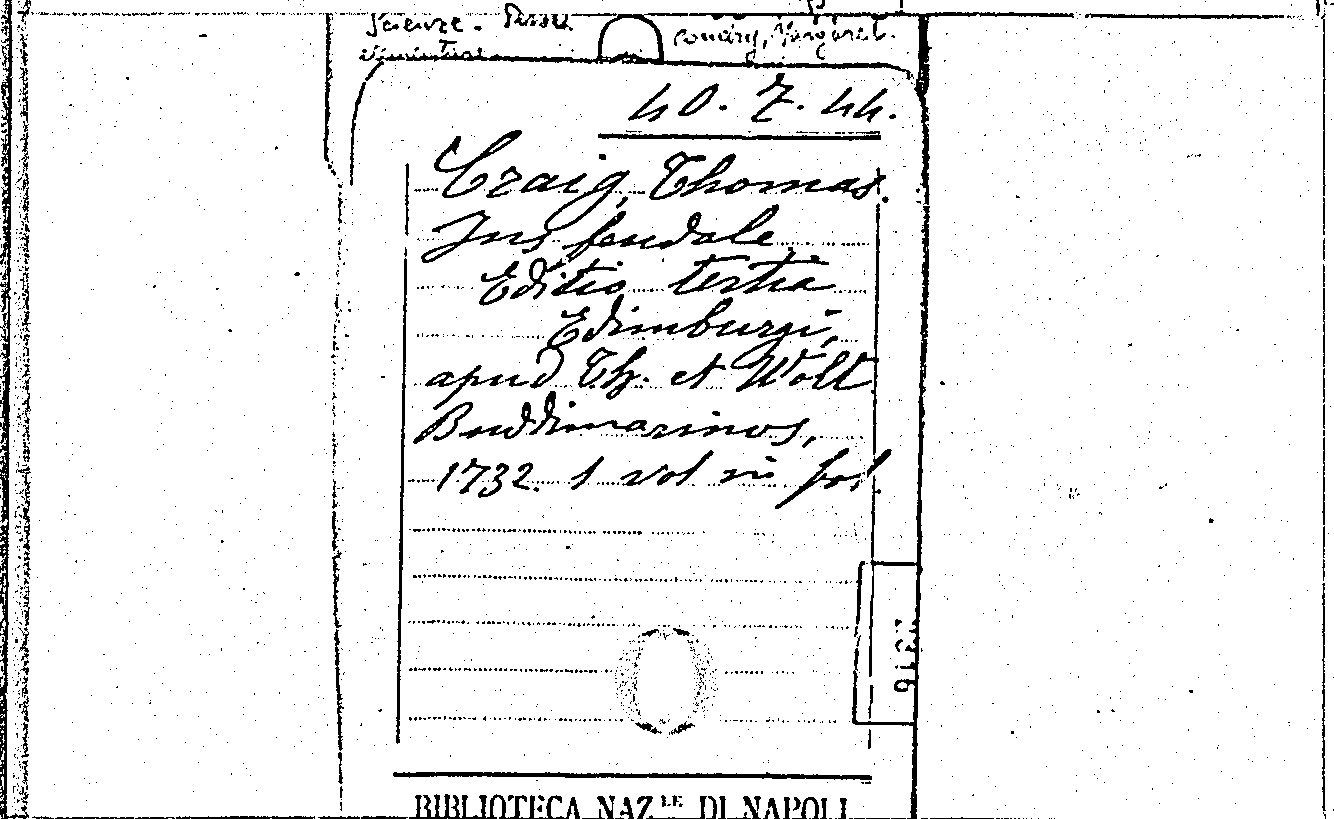 Scienze.
40. 7. 44.
Craig, Thomas.
Jus feudale
Editio tertia
Edimburgi,
apud Th. et Walt
Buddimarinos,
1732. 1 vol in fol.
BIBLIOTECA NAZ.LE DI NAPOLI